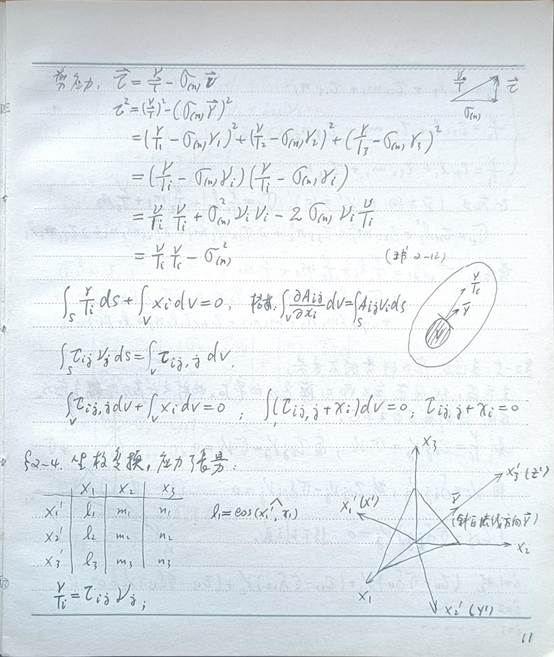 剪应力, \vec{τ} = \overset{ν}{T} - σ_{(n)} \vec{ν}
τ² = (\overset{ν}{T})² - (σ_{(n)} \vec{ν})²
= (\overset{ν}{T}_1 - σ_{(n)} ν_1)² + (\overset{ν}{T}_2 - σ_{(n)} ν_2)² + (\overset{ν}{T}_3 - σ_{(n)} ν_3)²
= (\overset{ν}{T}_i - σ_{(n)} ν_i)(\overset{ν}{T}_i - σ_{(n)} ν_i)
= \overset{ν}{T}_i \overset{ν}{T}_i + σ_{(n)}² ν_i ν_i - 2 σ_{(n)} ν_i \overset{ν}{T}_i
= \overset{ν}{T}_i \overset{ν}{T}_i - σ_{(n)}² (2-12)
∫_S \overset{ν}{T}_i ds + ∫_V X_i dv = 0, ∫_V \frac{∂A_{ij}}{∂x_i} dv = ∫_S A_{ij} ν_i ds
∫_S τ_{ij} ν_j ds = ∫_V τ_{ij,j} dv.
∫_V τ_{ij,j} dv + ∫_V X_i dv = 0 ; ∫(τ_{ij,j} + X_i) dv = 0, τ_{ij,j} + X_i = 0
§2-4. 坐标变换, 应力张量:
x_1 x_2 x_3
x_1' l_1 m_1 n_1
x_2' l_2 m_2 n_2
x_3' l_3 m_3 n_3
l_1 = cos(x_1', x_1)
\overset{ν}{T}_i = τ_{ij} ν_j ;
\overset{ν}{T}
\vec{τ}
σ_{(n)}
\overset{ν}{T}_i
\vec{ν}
x_3
x_3' (z')
x_1' (x')
\vec{ν}
(斜面法线方向\vec{ν})
x_2
x_1
x_2' (y')
11